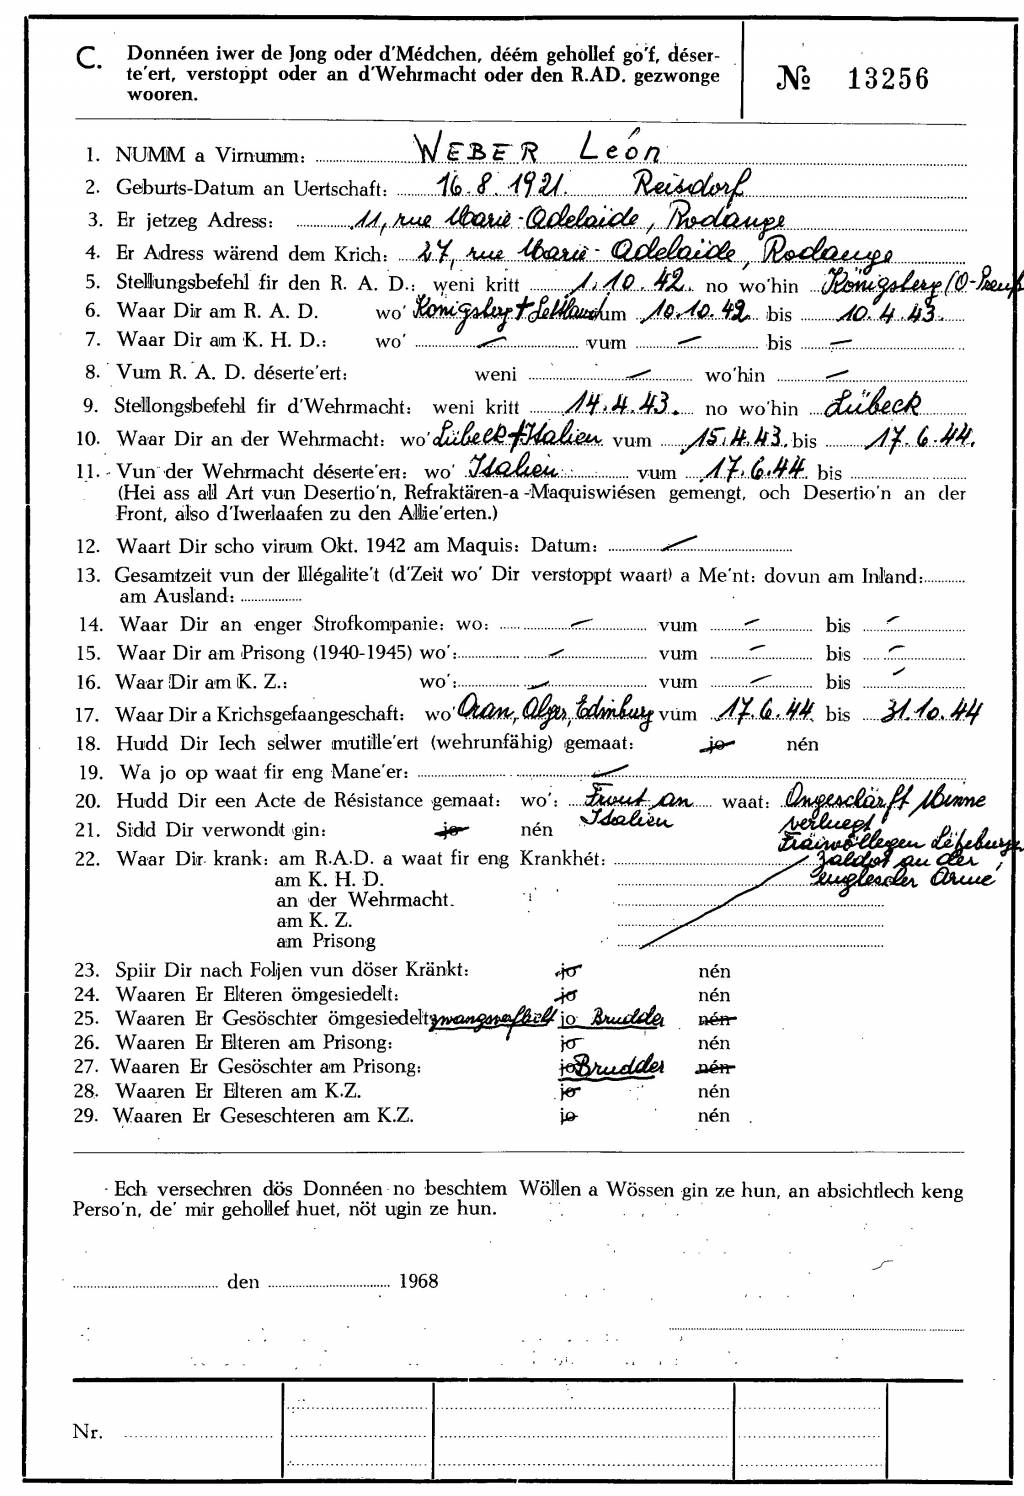 C. Donnéen iwer de Jong oder d'Médchen, déém gehollef go'f, déser-
te'ert, verstoppt oder an d'Wehrmacht oder den R.AD. gezwonge
wooren.
№ 13256
1. NUMM a Virnumm: WEBER León
2. Geburts-Datum an Uertschaft: 16.8.1921. Reisdorf
3. Er jetzeg Adress: 11, rue Marie-Adelaïde, Rodange
4. Er Adress wärend dem Krich: 27, rue Marie-Adelaïde, Rodange
5. Stellungsbefehl fir den R. A. D.: weni kritt 1.10.42. no wo'hin Königsberg (O-Preuß
6. Waar Dir am R. A. D. wo' Königsberg + Lettland vum 10.10.42 bis 10.4.43.
7. Waar Dir am K. H. D.: wo' — vum — bis —
8. Vum R. A. D. déserte'ert: weni — wo'hin —
9. Stellongsbefehl fir d'Wehrmacht: weni kritt 14.4.43. no wo'hin Lübeck
10. Waar Dir an der Wehrmacht: wo' Lübeck + Italien vum 15.4.43. bis 17.6.44.
11. Vun der Wehrmacht déserte'ert: wo' Italien vum 17.6.44 bis
(Hei ass all Art vun Desertio'n, Refraktären-a -Maquiswiésen gemengt, och Desertio'n an der
Front, also d'Iwerlaafen zu den Allie'erten.)
12. Waart Dir scho virum Okt. 1942 am Maquis: Datum: —
13. Gesamtzeit vun der Illégalite't (d'Zeit wo' Dir verstoppt waart) a Me'nt: dovun am Inland:
am Ausland:
14. Waar Dir an enger Strofkompanie: wo: — vum — bis —
15. Waar Dir am Prisong (1940-1945) wo': — vum — bis —
16. Waar Dir am K. Z.: wo': — vum — bis —
17. Waar Dir a Krichsgefaangeschaft: wo' Oran, Alger, Edinburg vum 17.6.44 bis 31.10.44
18. Hudd Dir Iech selwer mutille'ert (wehrunfähig) gemaat: jo nén
19. Wa jo op waat fir eng Mane'er: —
20. Hudd Dir een Acte de Résistance gemaat: wo': Front an waat: Ongeschärft Minne
Italien verluegt
21. Sidd Dir verwondt gin: jo nén
Fräiwëllegen Lëfeburger
22. Waar Dir krank: am R.A.D. a waat fir eng Krankhét: Zaldot an der
am K. H. D. englescher Armé
an der Wehrmacht.
am K. Z.
am Prisong
23. Spiir Dir nach Foljen vun döser Kränkt: jo nén
24. Waaren Er Elteren ömgesiedelt: jo nén
25. Waaren Er Gesöschter ömgesiedelt: zwangsverflicht jo Brudder nén
26. Waaren Er Elteren am Prisong: jo nén
27. Waaren Er Gesöschter am Prisong: jo Brudder nén
28. Waaren Er Elteren am K.Z. jo nén
29. Waaren Er Geseschteren am K.Z. jo nén
Ech versechren dös Donnéen no beschtem Wöllen a Wössen gin ze hun, an absichtlech keng
Perso'n, de' mir gehollef huet, nöt ugin ze hun.
den 1968
Nr.